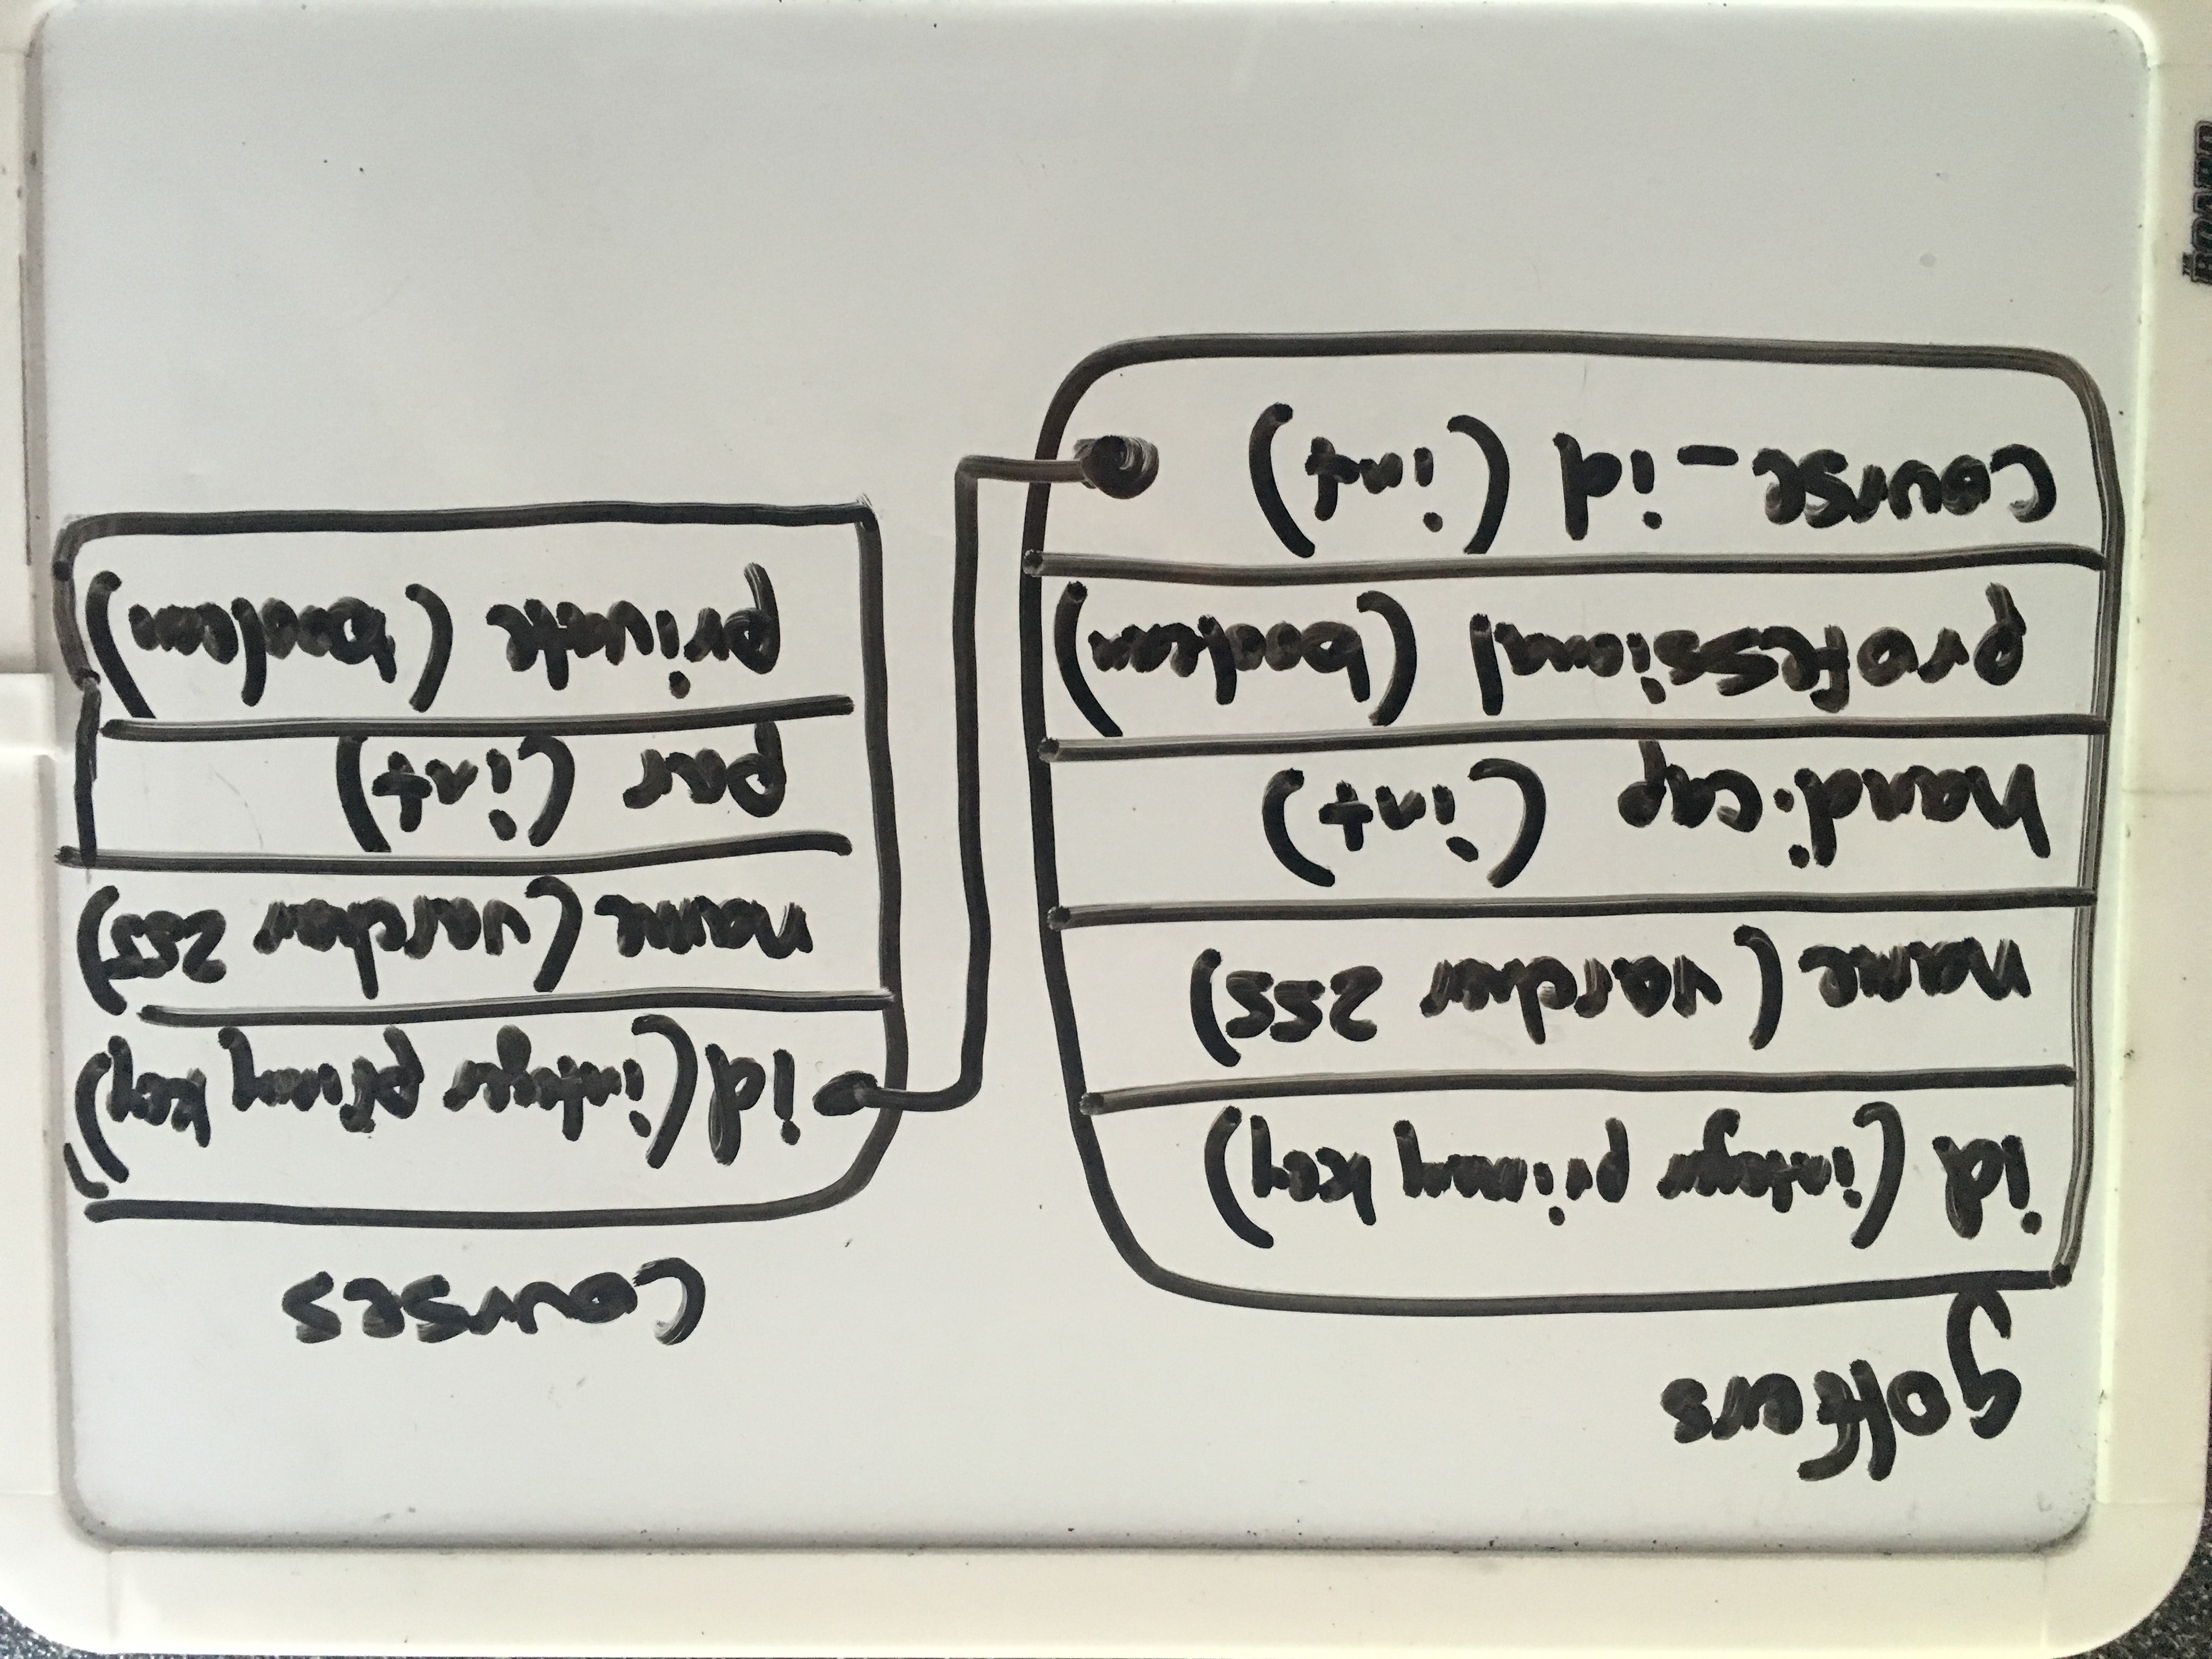 golfers
id (integer primary key)
name (varchar 255)
handicap (int)
professional (boolean)
course_id (int)
Courses
id (integer primary key)
name (varchar 255)
par (int)
private (boolean)